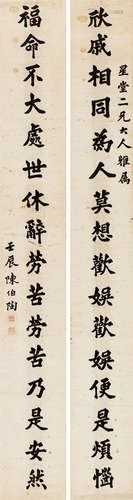 星堂二兄大人雅属
欣戚相同為人莫想歡娛歡娛便是煩惱
福命不大處世休辭勞苦勞苦乃是安然
壬辰陳伯陶